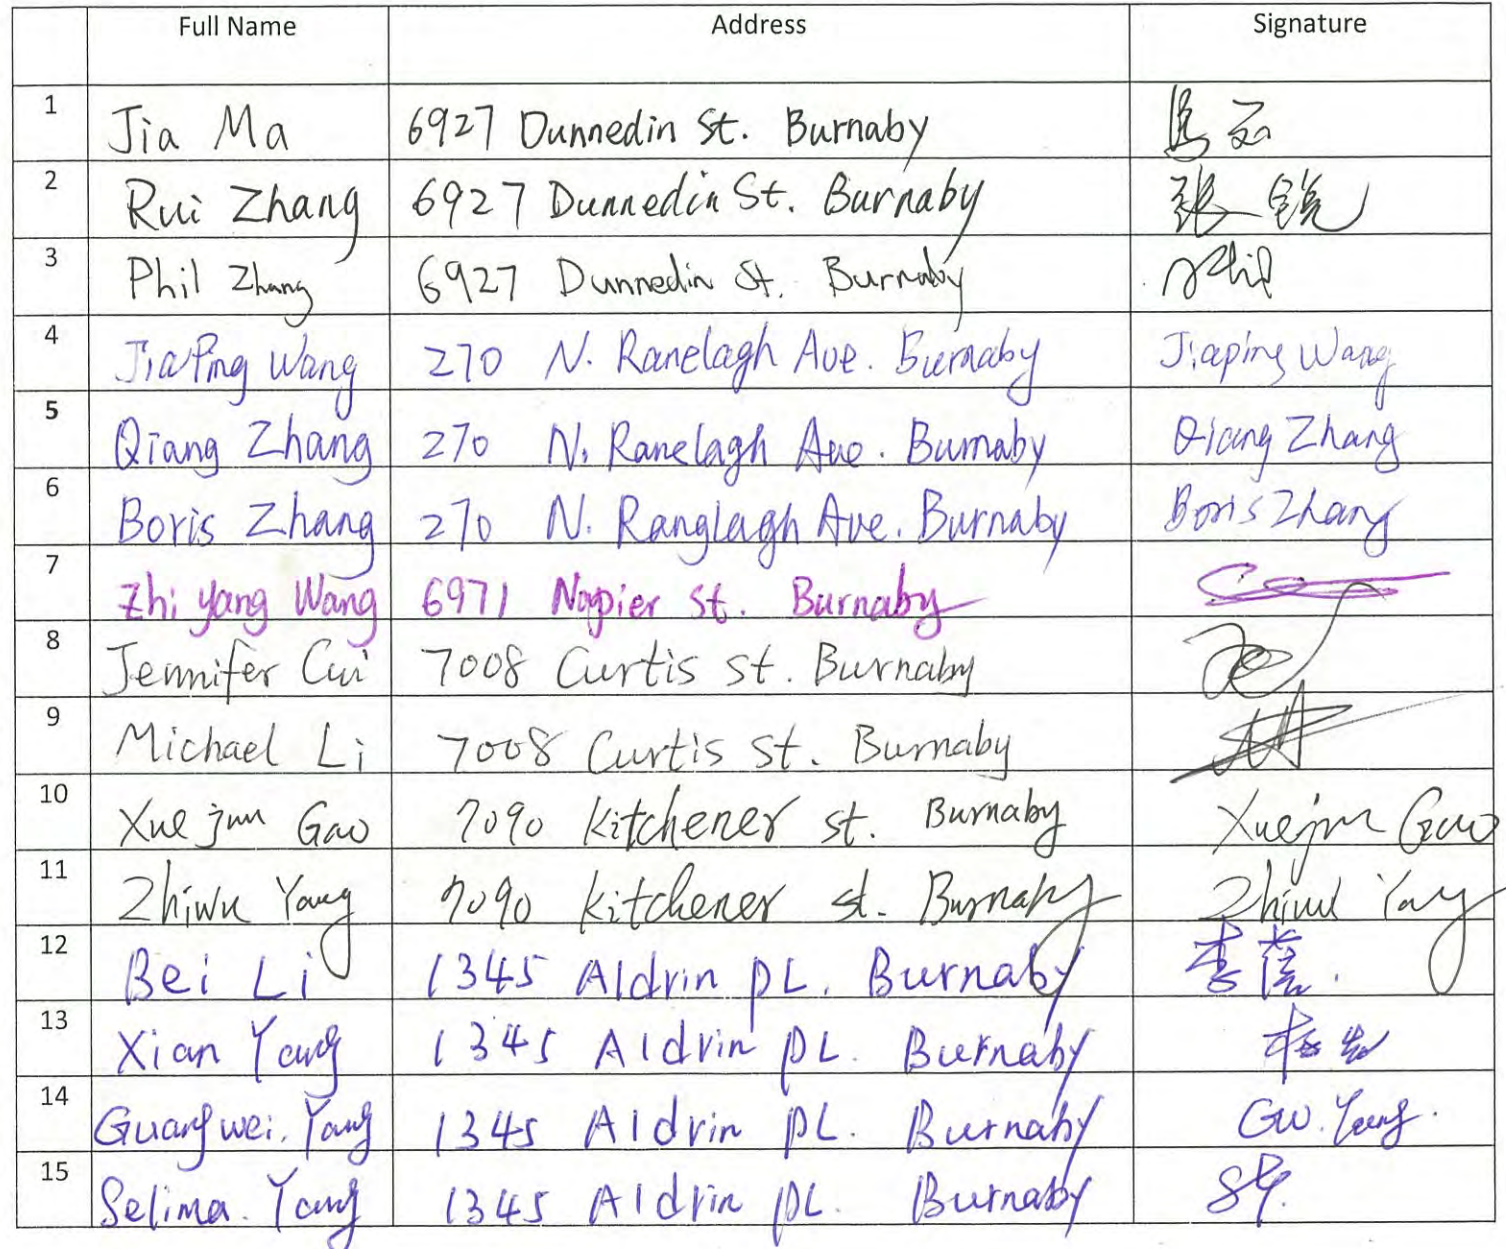 Full Name Address Signature
1 Jia Ma 6927 Dunnedin St. Burnaby 马
2 Rui Zhang 6927 Dunnedin St. Burnaby 张锐
3 Phil Zhang 6927 Dunnedin St. Burnaby Phil
4 JiaPing Wang 270 N. Ranelagh Ave. Burnaby Jiaping Wang
5 Qiang Zhang 270 N. Ranelagh Ave. Burnaby Qiang Zhang
6 Boris Zhang 270 N. Ranglagh Ave. Burnaby Boris Zhang
7 Zhi yang Wang 6971 Napier St. Burnaby
8 Jennifer Cui 7008 Curtis St. Burnaby
9 Michael Li 7008 Curtis St. Burnaby
10 Xue jun Gao 7090 Kitchener St. Burnaby Xuejun Gao
11 Zhiwu Yang 7090 Kitchener St. Burnaby Zhiwu Yang
12 Bei Li 1345 Aldrin PL. Burnaby 李蓓.
13 Xian Yang 1345 Aldrin PL. Burnaby
14 Guangwei. Yang 1345 Aldrin PL. Burnaby GW. Yang.
15 Selima. Yang 1345 Aldrin PL. Burnaby SY.